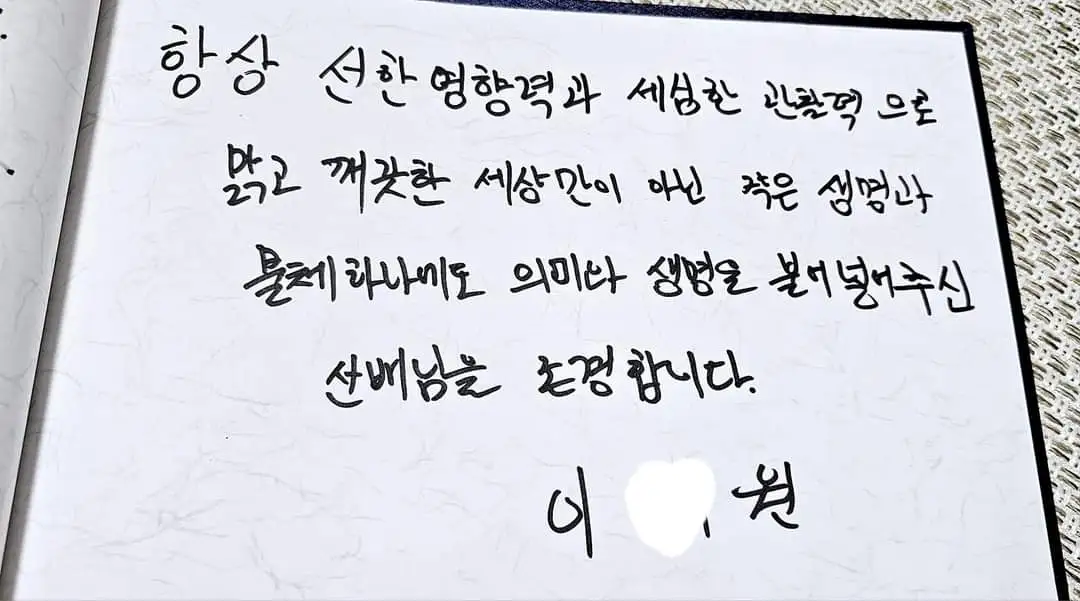 항상 선한 영향력과 세심한 관찰력으로
맑고 깨끗한 세상만이 아닌 작은 생명과
물체 하나에도 의미와 생명을 불어 넣어주신
선배님을 존경합니다.
이 원